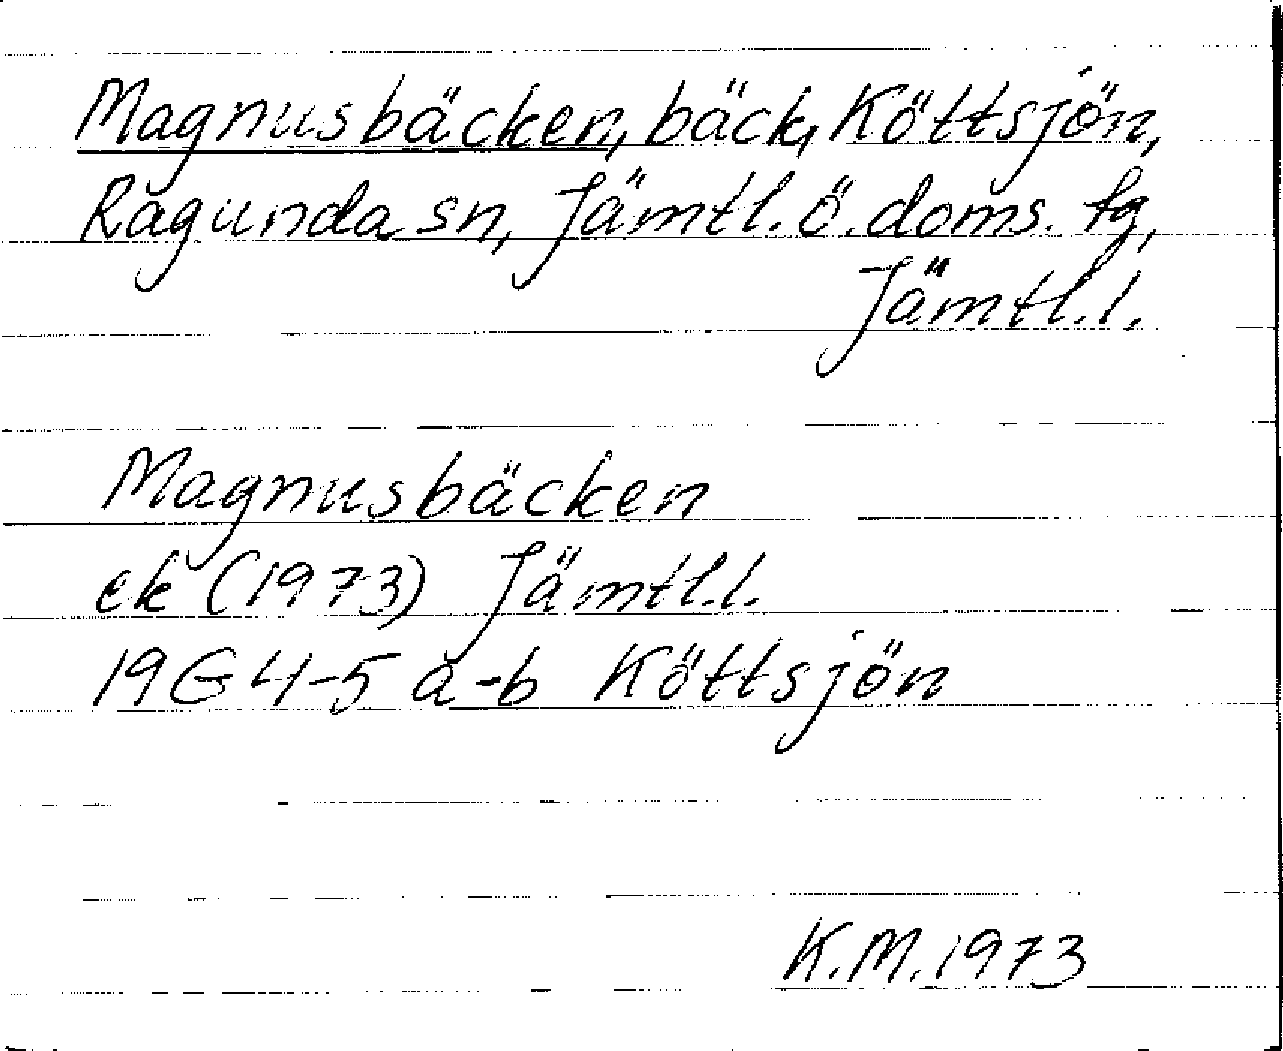 Magnusbäcken, bäck, Köttsjön,
Ragunda sn, Jämtl. ö. doms. tg,
Jämtl. l.
Magnusbäcken
ek (1973) Jämtl. l.
19G 4-5 a-b Köttsjön
K.M. 1973